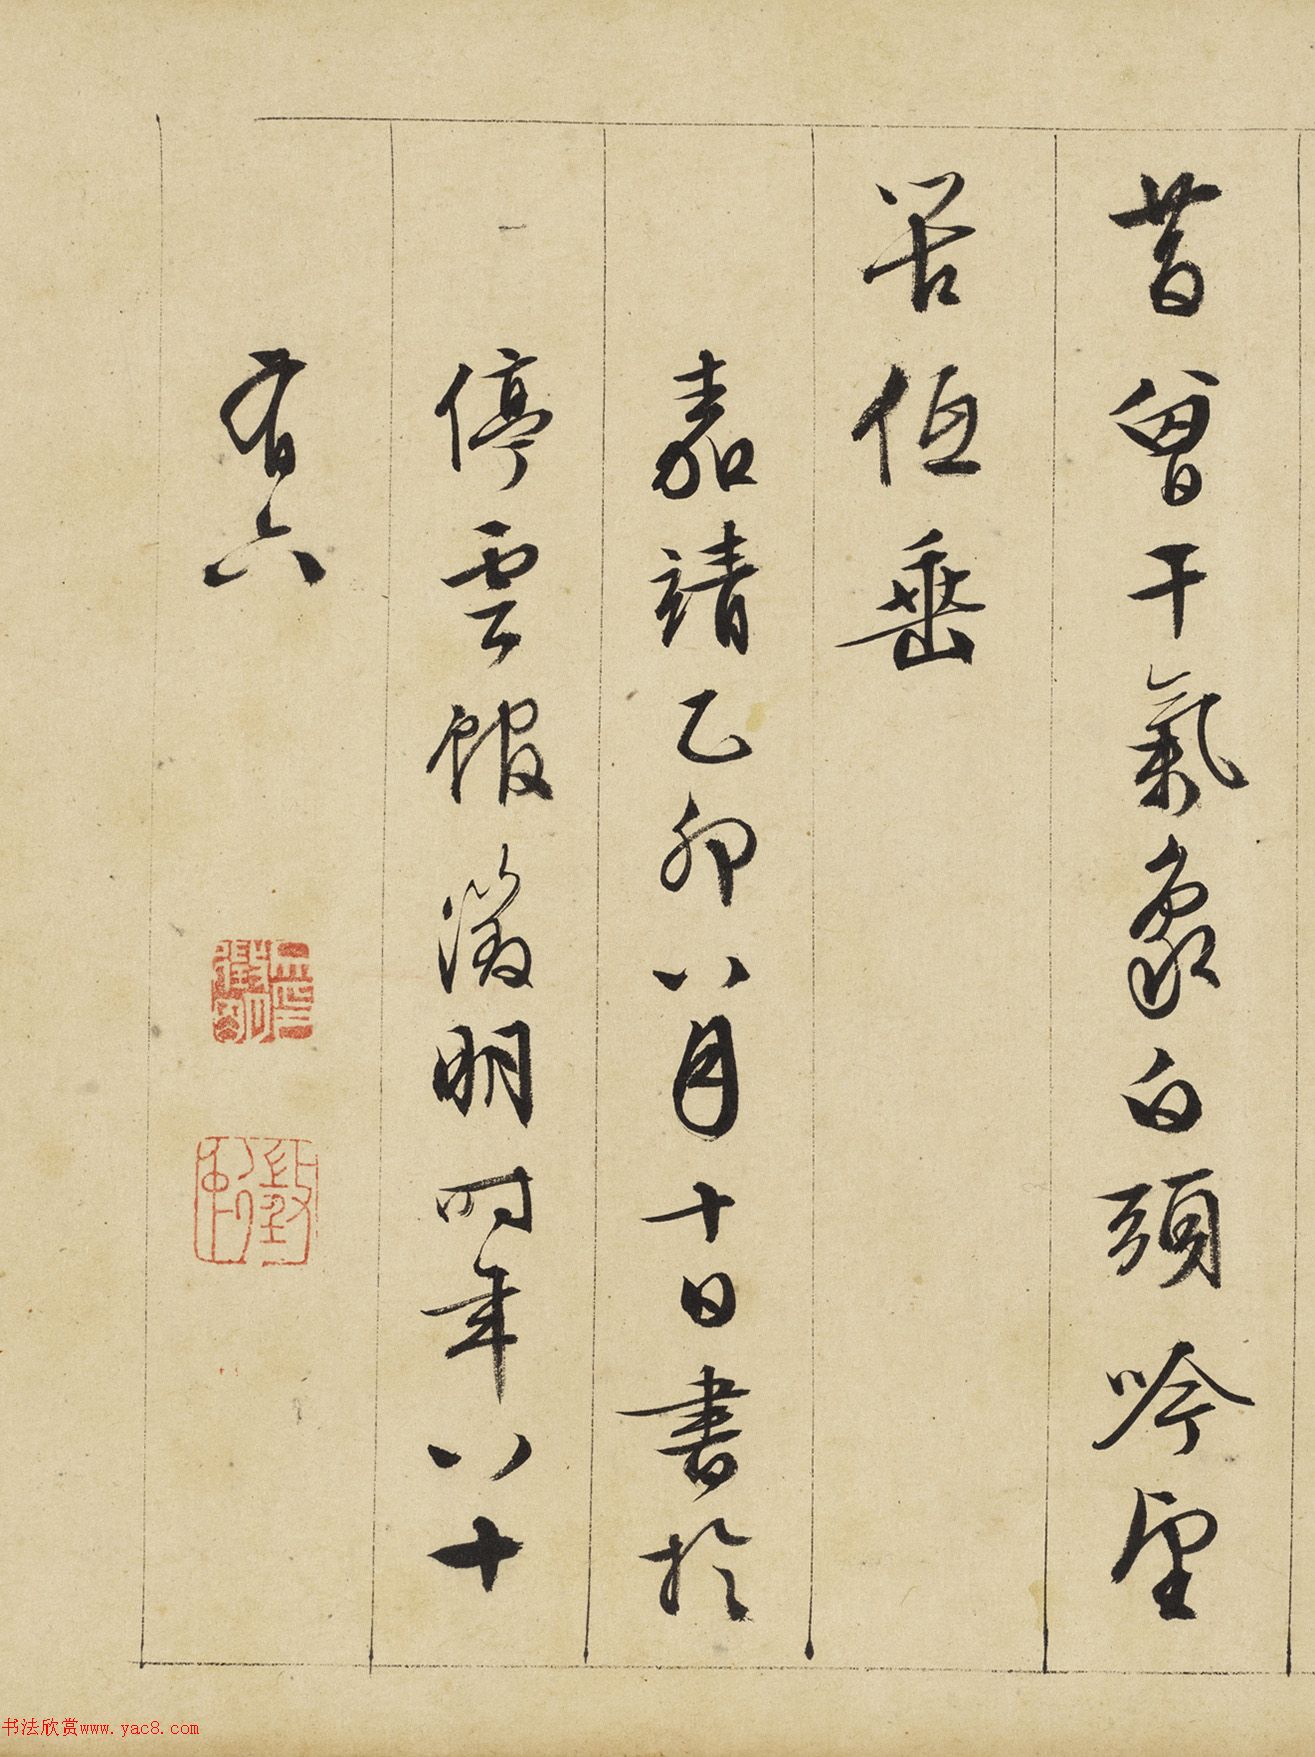 昔曾干氣象白頭吟望
苦低垂
嘉靖乙卯八月十日書於
停雲館徵明時年八十
有六
书法欣赏www.yac8.com